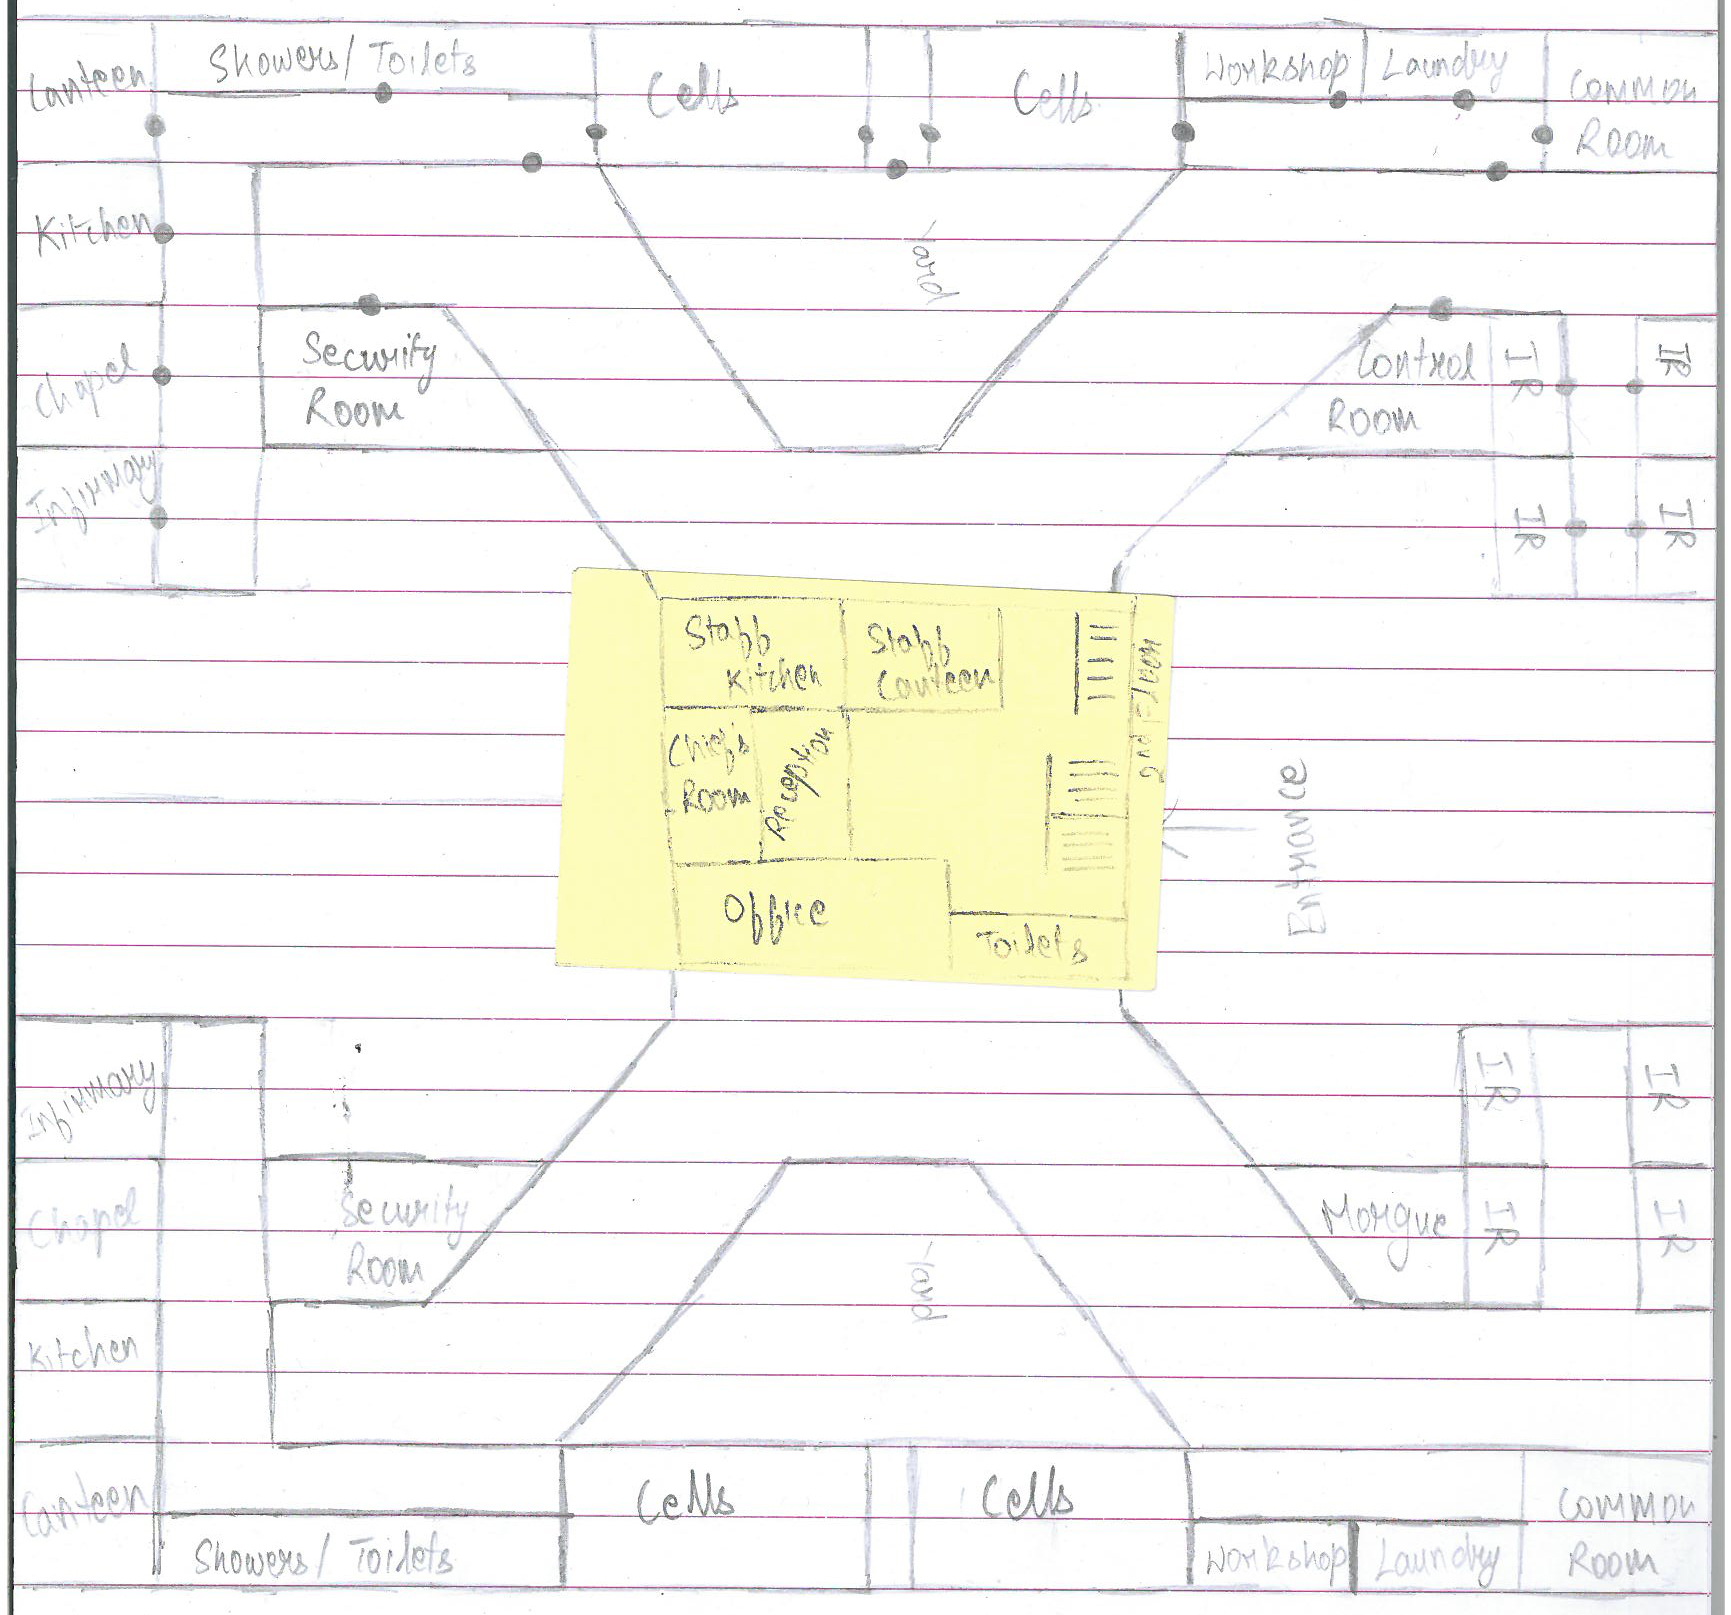 Canteen
Showers/ Toilets
Cells
Cells
Workshop
Laundry
Common
Room
Kitchen
Yard
Chapel
Security
Room
Control
Room
IR
IR
Infirmary
IR
IR
Staff
Kitchen
Staff
Canteen
2nd Floor
Chief's
Room
Reception
Entrance
Office
Toilets
Infirmary
IR
IR
Chapel
Security
Room
Yard
Morgue
IR
IR
Kitchen
Canteen
Cells
Cells
Common
Room
Showers/ Toilets
Workshop
Laundry